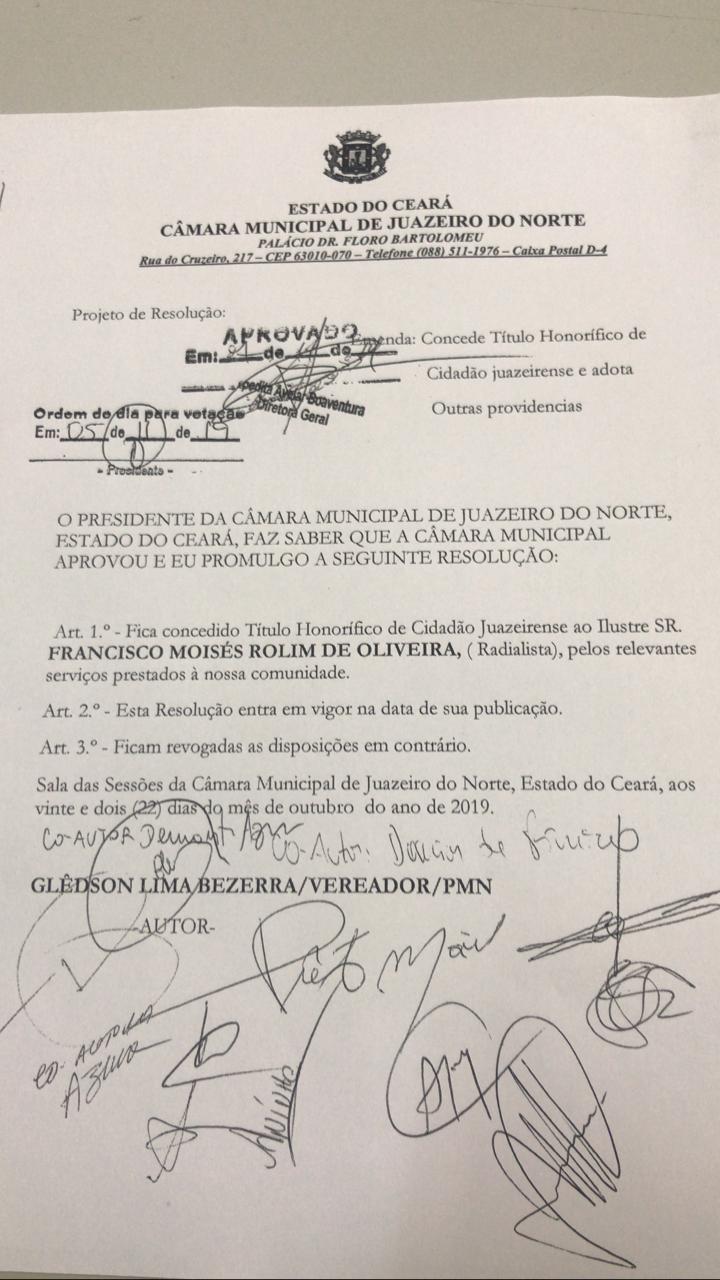 ESTADO DO CEARÁ
CÂMARA MUNICIPAL DE JUAZEIRO DO NORTE
PALÁCIO DR. FLORO BARTOLOMEU
Rua do Cruzeiro, 217 – CEP 63010-070 – Telefone (088) 511-1976 – Caixa Postal D-4
Projeto de Resolução:
APROVADO
Em: de de
Ementa: Concede Título Honorífico de
Cidadão juazeirense e adota
Outras providencias
Boaventura
Diretora Geral
Ordem do dia para votação
Em: 05 de 11 de 19
- Presidente -
O PRESIDENTE DA CÂMARA MUNICIPAL DE JUAZEIRO DO NORTE,
ESTADO DO CEARÁ, FAZ SABER QUE A CÂMARA MUNICIPAL
APROVOU E EU PROMULGO A SEGUINTE RESOLUÇÃO:
Art. 1.º - Fica concedido Título Honorífico de Cidadão Juazeirense ao Ilustre SR.
FRANCISCO MOISÉS ROLIM DE OLIVEIRA, ( Radialista), pelos relevantes
serviços prestados à nossa comunidade.
Art. 2.º - Esta Resolução entra em vigor na data de sua publicação.
Art. 3.º - Ficam revogadas as disposições em contrário.
Sala das Sessões da Câmara Municipal de Juazeiro do Norte, Estado do Ceará, aos
vinte e dois (22) dias do mês de outubro do ano de 2019.
CO-AUTOR
Co-Autor:
GLÊDSON LIMA BEZERRA/VEREADOR/PMN
-AUTOR-